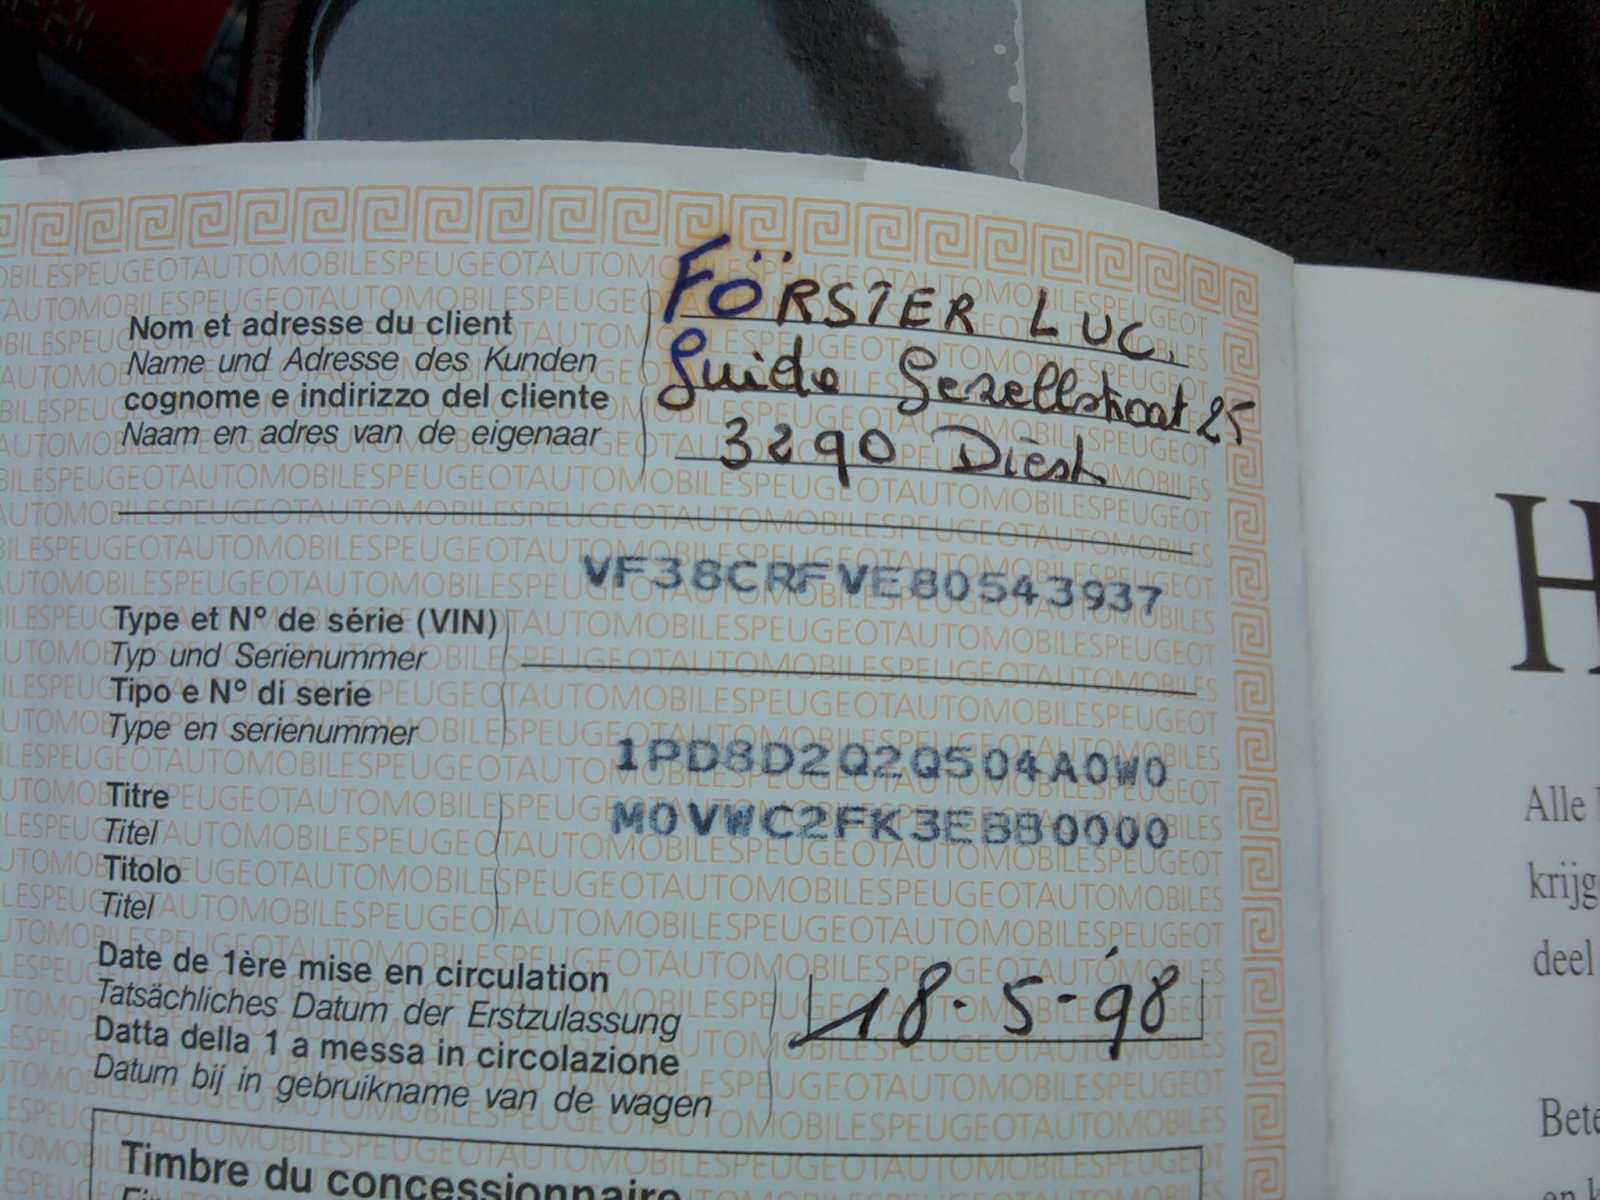 Nom et adresse du client
Name und Adresse des Kunden
cognome e indirizzo del cliente
Naam en adres van de eigenaar
FÖRSTER LUC.
Guido Gezellestraat 25
3290 Diest
VF38CRFVE80543937
Type et N° de série (VIN)
Typ und Serienummer
Tipo e N° di serie
Type en serienummer
1PD8D2Q2Q504A0W0
M0VWC2FK3EBB0000
Titre
Titel
Titolo
Titel
Date de 1ère mise en circulation
Tatsächliches Datum der Erstzulassung
Datta della 1 a messa in circolazione
Datum bij in gebruikname van de wagen
18-5-'98
Timbre du concessionnaire
H
Alle
krijg
deel
Bete